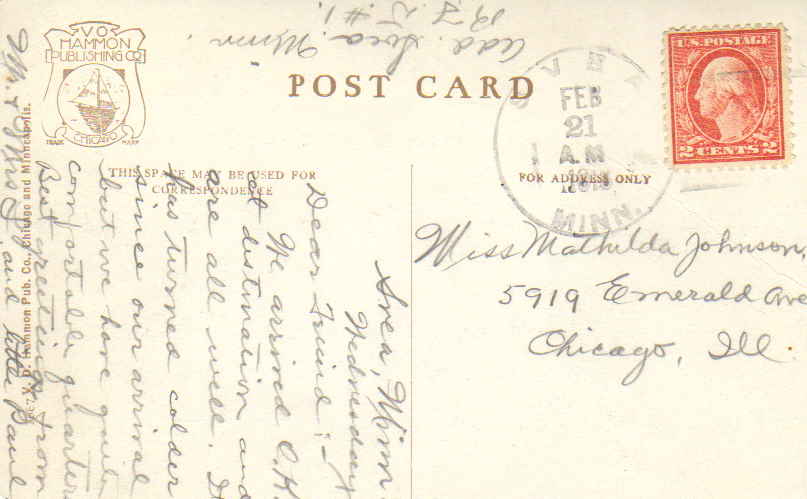 V.O.
HAMMON
PUBLISHING CO
CHICAGO
TRADE MARK
POST CARD
THIS SPACE MAY BE USED FOR
CORRESPONDENCE
FOR ADDRESS ONLY
V. O. Hammon Pub. Co., Chicago and Minneapolis.
U.S. POSTAGE
2 CENTS 2
SVEA
FEB
21
A.M.
MINN.
Miss Mathilda Johnson,
5919 Emerald Ave
Chicago, Ill.
Svea, Minn.
Wednesday
Dear Friend:
We arrived O.K.
at distination and
are all well. It
has turned colder
since our arrival
but we have quite
comfortable quarters
Best greetings from
Mr. & Mrs. and little Paul
Add. Svea, Minn.
R.F.D. #1.